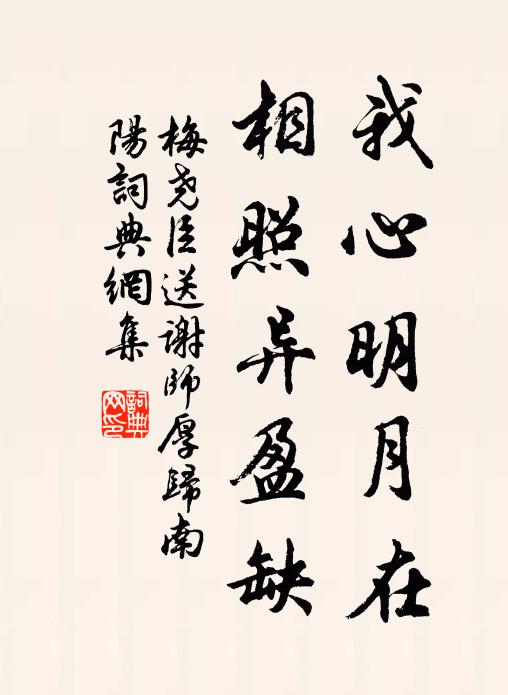 我心明月在
相照异盈缺
梅尧臣送谢師厚歸南
陽詞典網集
詞典
网印